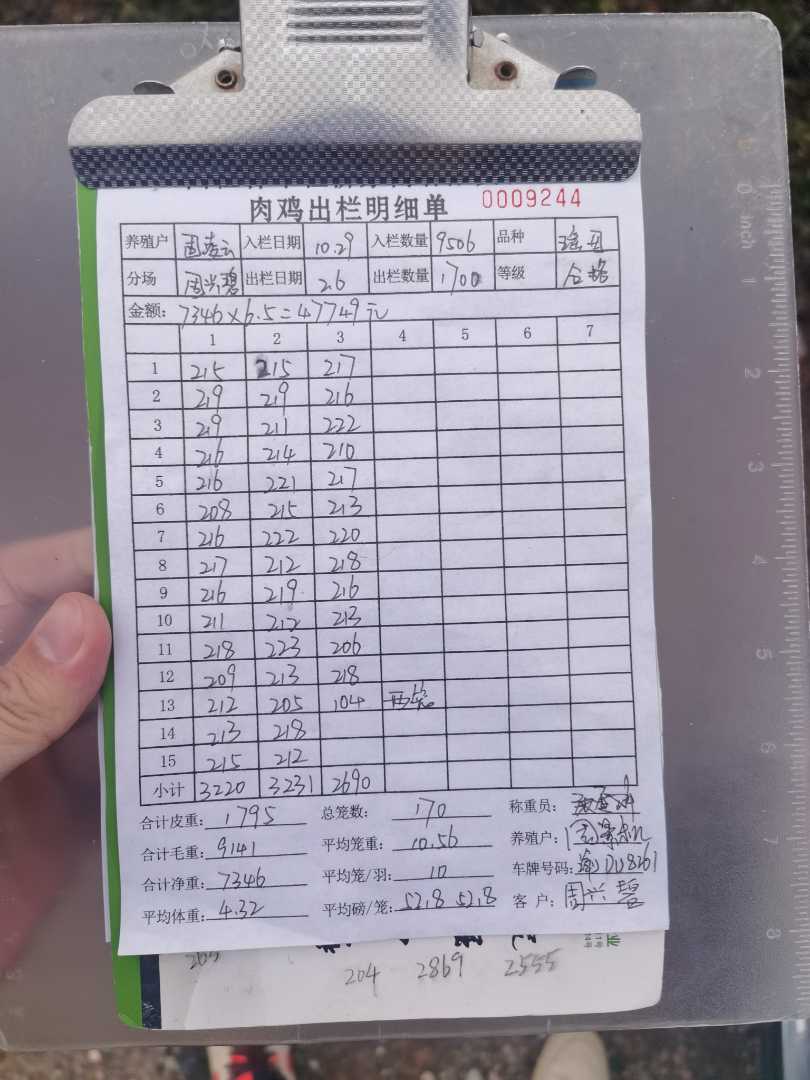 肉鸡出栏明细单 0009244
养殖户 周凌云 入栏日期 10.29 入栏数量 9506 品种
分场 周兴碧 出栏日期 2.6 出栏数量 1700 等级 合格
金额: 7346×6.5=47749元
1 2 3 4 5 6 7
1 215 215 217
2 219 219 216
3 219 211 222
4 216 214 210
5 216 221 217
6 208 215 213
7 216 222 220
8 217 212 218
9 216 219 216
10 211 212 213
11 218 223 206
12 209 213 218
13 212 205 104 两笼
14 213 218
15 215 212
小计 3220 3231 2690
合计皮重: 1795 总笼数: 170 称重员:
合计毛重: 9141 平均笼重: 10.56 养殖户:
合计净重: 7346 平均笼/羽: 10 车牌号码: 渝DU8261
平均体重: 4.32 平均磅/笼: 52.8 52.8 客 户: 周兴碧
204 2869 2555
0 inch
1
2
3
4
5
6
7
8